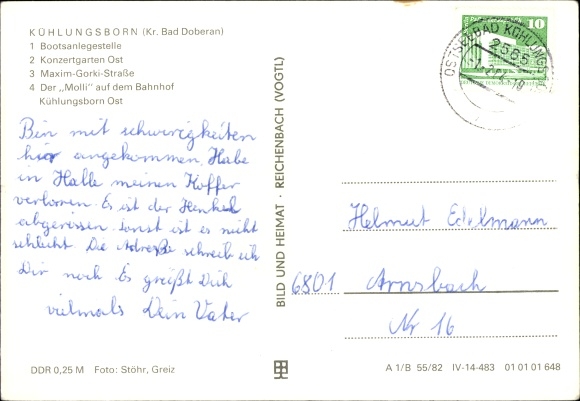 KÜHLUNGSBORN (Kr. Bad Doberan)
1 Bootsanlegestelle
2 Konzertgarten Ost
3 Maxim-Gorki-Straße
4 Der „Molli" auf dem Bahnhof
Kühlungsborn Ost
Bin mit schwirigkeiten
hier angekommen. Habe
in Halle meinen Koffer
verlorren. Es ist der Henkel
abgerissen sonst ist es nicht
schlecht. Die Adreße schreib ich
Dir noch Es grüßt Dich
vielmals Dein Vater
BILD UND HEIMAT · REICHENBACH (VOGTL)
10
OSTSEEBAD KÜHLUNGS
2565
Helmut Edelmann
6801 Arnsbach
Nr 16
DDR 0,25 M Foto: Stöhr, Greiz
A 1/B 55/82 IV-14-483 01 01 01 648